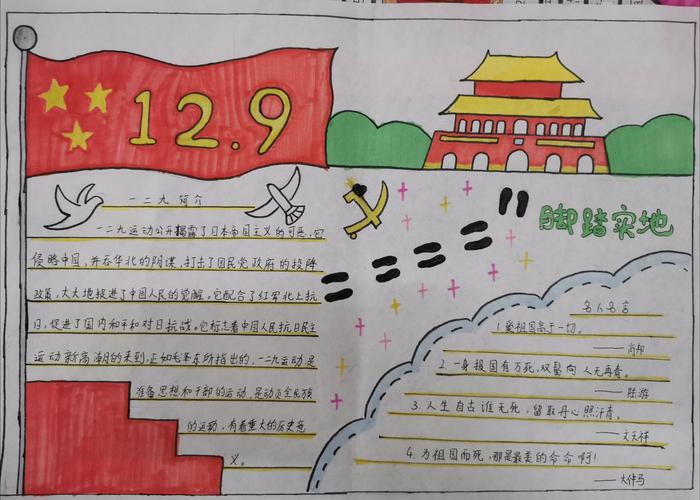 12.9
一二九 简介
一二九运动公开揭露了日本帝国主义的可恶,它
侵略中国,并吞华北的阴谋,打击了国民党政府的投降
政策,大大地促进了中国人民的觉醒。它配合了红军北上抗
日,促进了国内和平和对日抗战。它标志着中国人民抗日民主
运动新高潮的来到,正如毛泽东所指出的,一二九运动是
准备思想和干部的运动,是动员全民族
的运动,有着重大的历史意
义。
脚踏实地
名人名言
1.爱祖国高于一切。
——肖邦
2.一身报国有万死,双鬓向人无再青。
——陆游
3.人生自古谁无死,留取丹心照汗青。
——文天祥
4.为祖国而死,那是最美的命命啊!
——大仲马